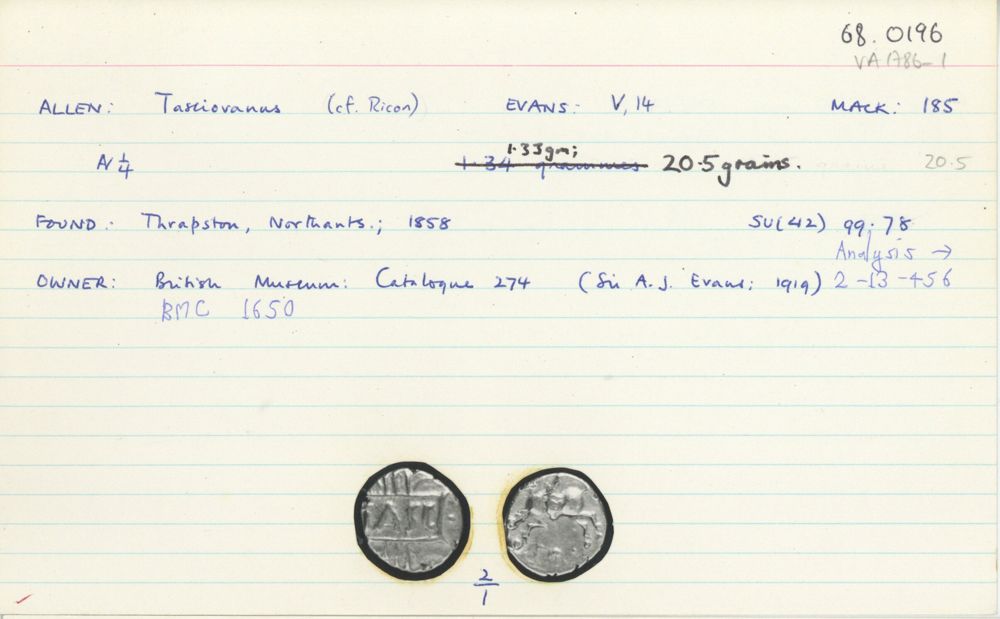 68.0196
VA1786-1
ALLEN: Tasciovanus (cf. Ricon) EVANS: V,14 MACK: 185
N ¼ 1.34 grammes 1.33gm; 20.5 grains. 20.5
FOUND: Thrapston, Northants.; 1858 SU(42) 99:78
Analysis →
OWNER: British Museum: Catalogue 274 (Sir A.J. Evans; 1919) 2-13-456
BMC 1650
2/1